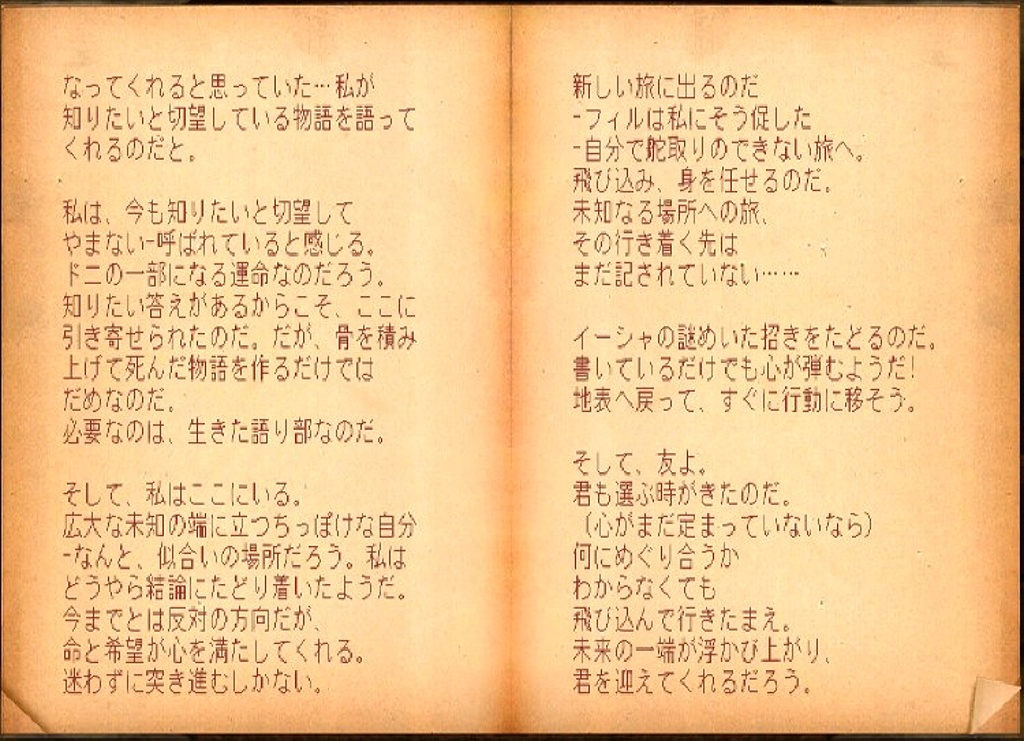 なってくれると思っていた…私が
知りたいと切望している物語を語って
くれるのだと。
私は、今も知りたいと切望して
やまない-呼ばれていると感じる。
ドニの一部になる運命なのだろう。
知りたい答えがあるからこそ、ここに
引き寄せられたのだ。だが、骨を積み
上げて死んだ物語を作るだけでは
だめなのだ。
必要なのは、生きた語り部なのだ。
そして、私はここにいる。
広大な未知の端に立つちっぽけな自分
-なんと、似合いの場所だろう。私は
どうやら結論にたどり着いたようだ。
今までとは反対の方向だが、
命と希望が心を満たしてくれる。
迷わずに突き進むしかない。
新しい旅に出るのだ
-フィルは私にそう促した
-自分で舵取りのできない旅へ。
飛び込み、身を任せるのだ。
未知なる場所への旅、
その行き着く先は
まだ記されていない……
イーシャの謎めいた招きをたどるのだ。
書いているだけでも心が弾むようだ!
地表へ戻って、すぐに行動に移そう。
そして、友よ。
君も選ぶ時がきたのだ。
(心がまだ定まっていないなら)
何にめぐり合うか
わからなくても
飛び込んで行きたまえ。
未来の一端が浮かび上がり、
君を迎えてくれるだろう。